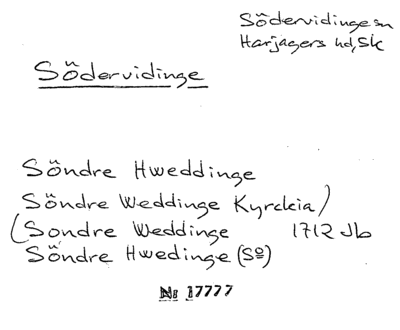 Södervidinge sn
Harjagers hd, Sk
Södervidinge
Söndre Hweddinge
Söndre Weddinge Kyrckia)
(Sondre Weddinge 1712 Jb
Söndre Hwedinge (Sº)
Nº 17777